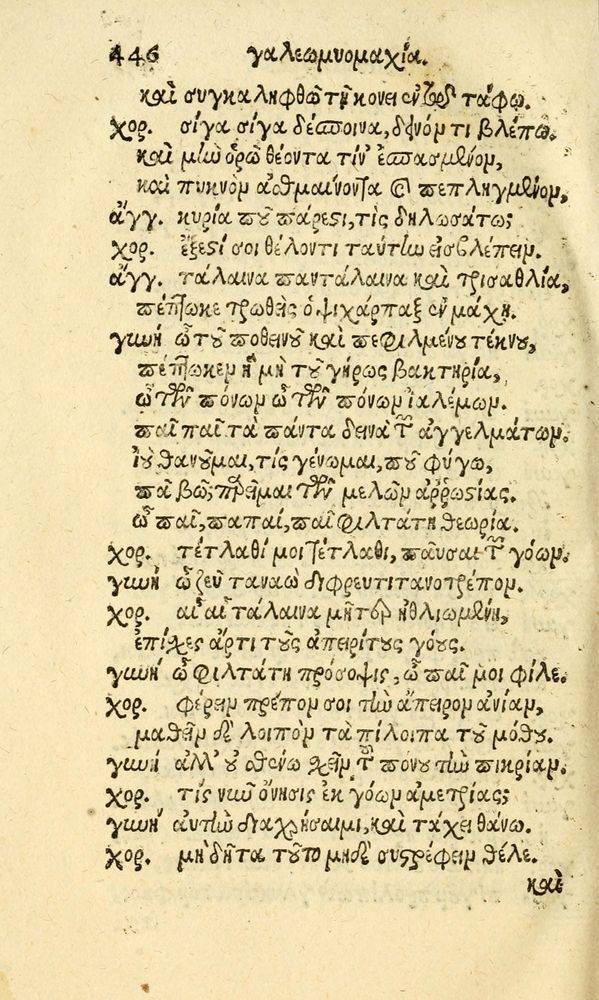 446 γαλεωμυομαχία.
καὶ συγκαληφθῶ τῇ κόνει ἐνθάδε τάφῳ.
χορ. σίγα σίγα δέσποινα, δεινόν τι βλέπω.
καὶ μῦν ὁρῶ θέοντα τίν' ἐσπασμένον,
καὶ πυκνὸν ἀσθμαίνοντα καὶ πεπληγμένον,
ἄγγ. κυρία ποῦ πάρεστι, τὶς δηλωσάτω;
χορ. ἔξεστί σοι θέλοντι ταύτην εἰσβλέπειν.
ἄγγ. τάλαινα παντάλαινα καὶ τρισαθλία,
πέπτωκε τρωθεὶς ὁ ψιχάρπαξ ἐν μάχῃ.
γυνή ὦ τοῦ ποθεινοῦ καὶ πεφιλμένου τέκνου,
πέπτωκεν ἡ μὴ τοῦ γήρως βακτηρία,
ὢ τῶν πόνων ὢ τῶν πόνων ἰαλέμων.
παῖ παῖ τὰ πάντα δεινὰ τῶν ἀγγελμάτων.
ἰοὺ θανοῦμαι, τίς γένωμαι, ποῦ φύγω,
πᾶ βῶ; πρεῖμαι τῶν μελῶν ἀῤῥωστίας.
ὦ παῖ, παπαί, παῖ φιλτάτη θεωρία.
χορ. τέτλαθί μοι τέτλαθι, παῦσαι τῶν γόων.
γυνή ὦ ζεῦ ταναῶ διφρευτι τανοτρέπον.
χορ. αἲ αἲ τάλαινα μῆτερ ἠθλιωμένη,
ἐπίσχες ἄρτι τοὺς ἀπειρίτους γόους.
γυνή ὦ φιλτάτη πρόσοψις, ὦ παῖ μοι φίλε.
χορ. φέρειν πρέπον σοι τὴν ἄπειρον ἀνίαν,
μαθεῖν δὲ λοιπὸν τὰ πίλοιπα τοῦ μόθου.
γυνή ἀλλ' οὐ σθένω σχεῖν τοῦ πόνου τὴν πικρίαν.
χορ. τίς νῦν ὄνησις ἐκ γόων ἀμετρίας;
γυνή αὐτὴν διαχρήσαιμι, καὶ τάχει θάνω.
χορ. μὴ δῆτα τοῦτο μηδὲ συστρέφειν θέλε.
καὶ